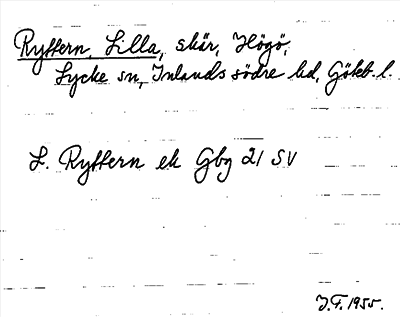 Ryffern, Lilla, skär, Högö,
Lycke sn, Inlands södre hd, Göteb. l.
L. Ryffern ek Gbg 21 SV
J.F. 1955.